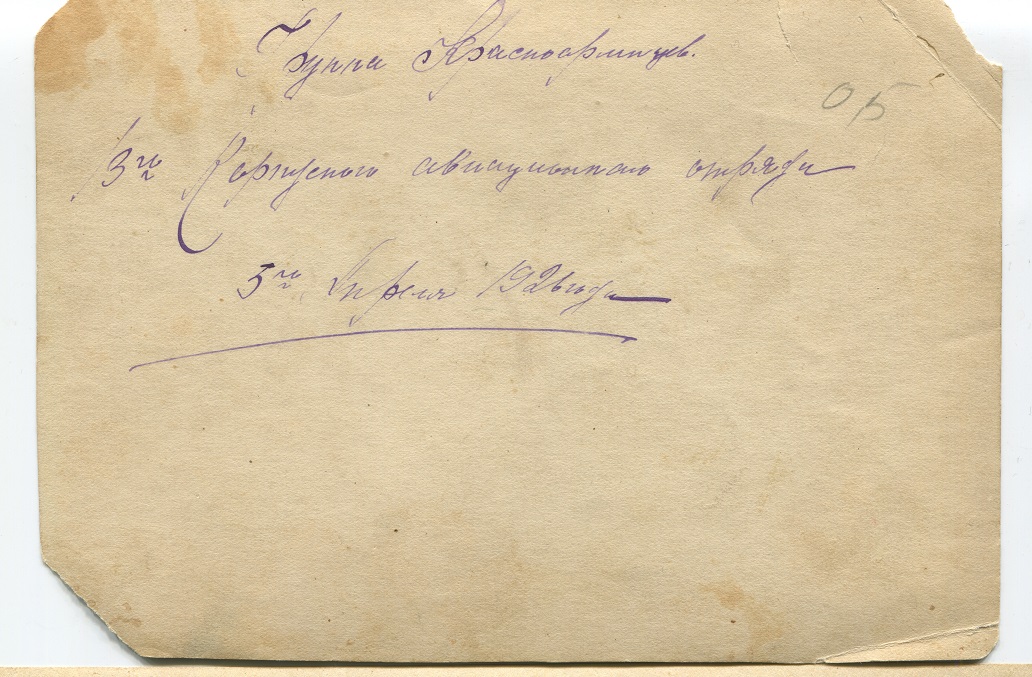 Группа Красноармейцев.
05
3го Корпусного авиационного отряда
5го Апреля 1926 года